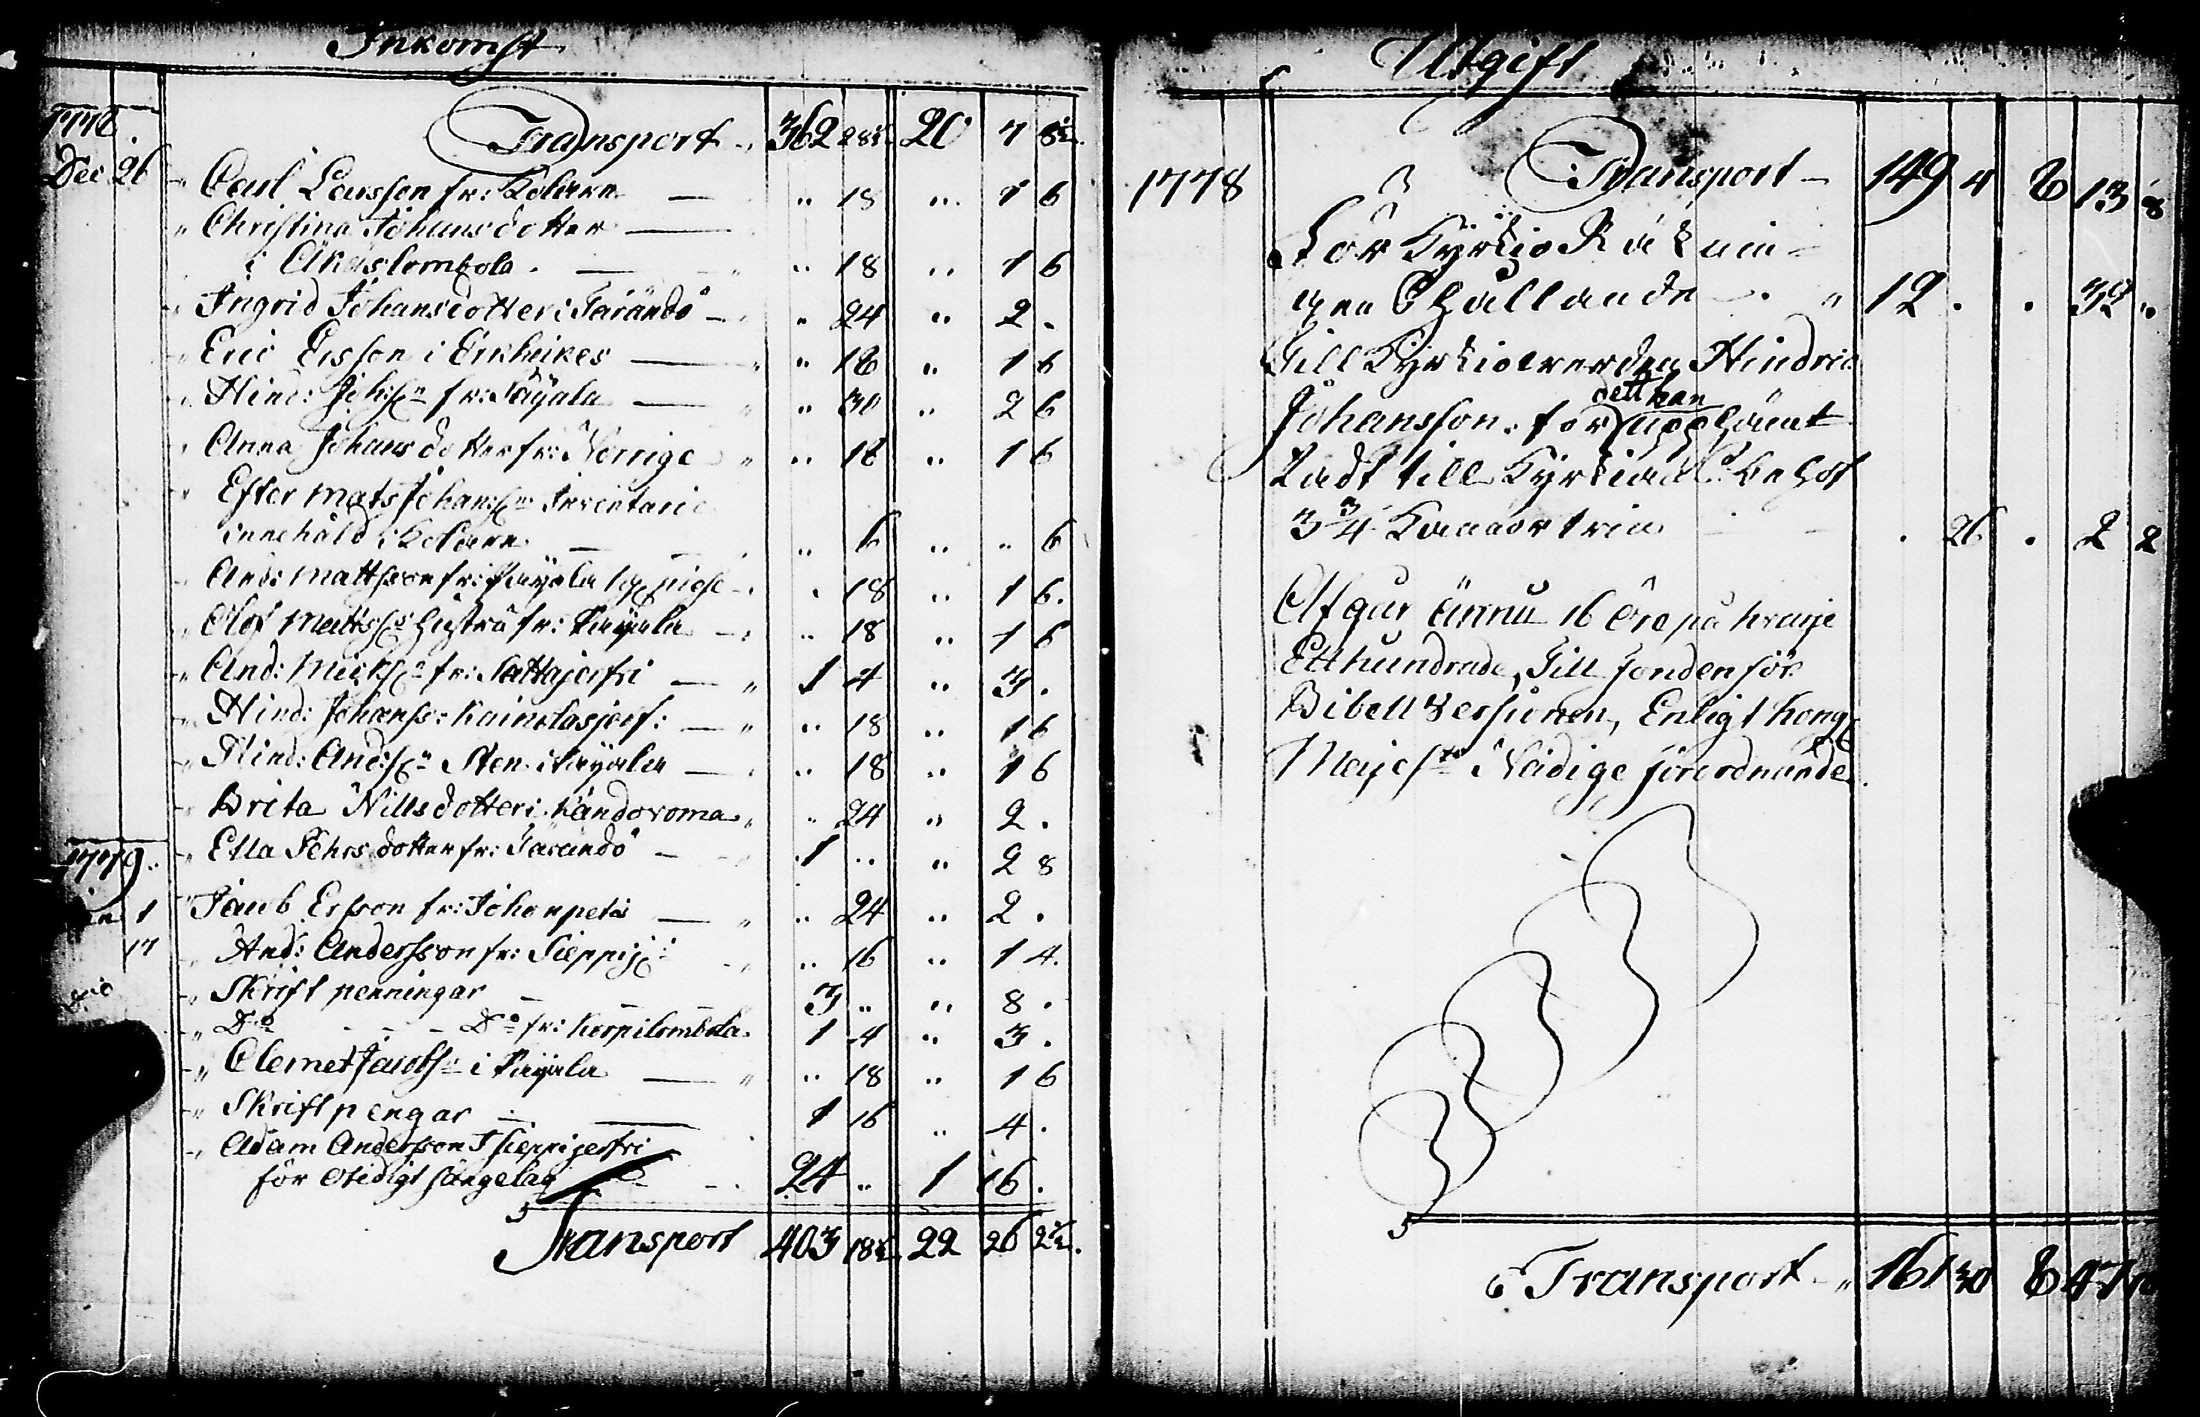 Inkomst
1778.
Transport 362 28½ 20 7 8½
Dec 26 Carl Larsson fr: Kolare — " 18 " 1 6
" Christina Johansdotter —
i Äkäslombola. — " 18 " 1 6
Ingrid Johansdotter i Tärändö — " 24 " 2 .
Eric Ersson i Erkheikes — " 18 " 1 6
Hind: Joh:ss:n fr: Pajala — " 30 " 2 6
Anna Johansdotter fr: Norrige " 18 " 1 6
Efter Mats Johans:s:n Inventarie
innehåld i Kolare — " 6 " " 6
And: Mattsson fr: Pajala " 18 " 1 6.
Olof Matts:s:s hustru fr: Pajala — " 18 " 1 6
And: Mick:s:n fr: Sattajerfvi — 1 4 " 3 .
Hind: Johanss: Kainulasjerf: — " 18 " 1 6
Hind: And:s:n Sten i Pajala — " 18 " 1 6
Brita Nillsdotter i Kändoroma " 24 " 2 .
1779. Ella Pehrsdotter fr: Tärändö — 1 " " 2 8
1 Jacob Ersson fr: Johonpeta — " 24 " 2 .
17 And: Andersson fr: Sieppij: " 16 " 1 4.
Skrift penningar — 3 " " 8 .
D:o — D:o fr: Korpilombola. 1 4 " 3 .
Clemet Jacobs:n i Pajala — " 18 " 1 6
Skriftpengar — 1 16 " 4 .
Adam Andersson I Sieppijerfvi
för otidigt sängelag 24 " 1 16 .
Transport 403 18½ 22 26 2½.
Utgift
1778 Transport — 149 4 8 13 8
För Kyrkio Räkni-
gen Ehållande — . " 12 . . 32 "
Till Kyrkiovärden Hindric
dett han
Johansson. för upphämt
ladt till Kyrkians behof
3 3/4 Kannor . 26 . 2 2
Afgår ännu 16 öre på hvarje
Etthundrade, Till fonden för
Bibell Versionen, Enligt Kongl
Maje:sts Nådige förordnande.
Transport — " 161 30 8 47 10